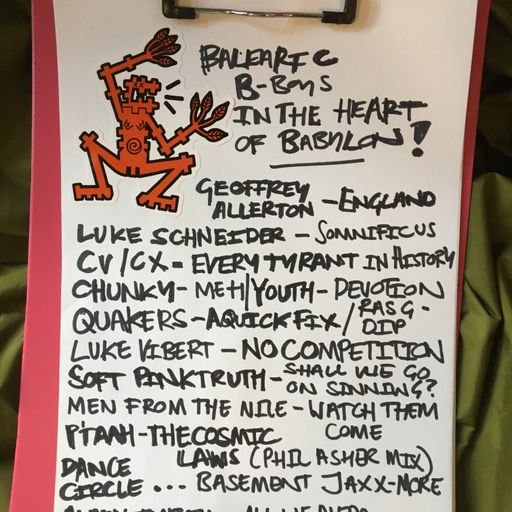 BALEARIC
B-BOYS
IN THE HEART
OF BABYLON!
GEOFFREY
ALLERTON - ENGLAND
LUKE SCHNEIDER - SOMNIFICUS
CV/CX = EVERY TYRANT IN HISTORY
CHUNKY - METH/YOUTH - DEVOTION
QUAKERS - A QUICK FIX/RAS G -
DIP
LUKE VIBERT - NO COMPETITION
SOFT PINK TRUTH - SHALL WE GO
ON SINNING?
MEN FROM THE NILE - WATCH THEM
COME
P'TAAH - THE COSMIC
LAWS (PHIL ASHER MIX)
DANCE
CIRCLE ... BASEMENT JAXX - MORE